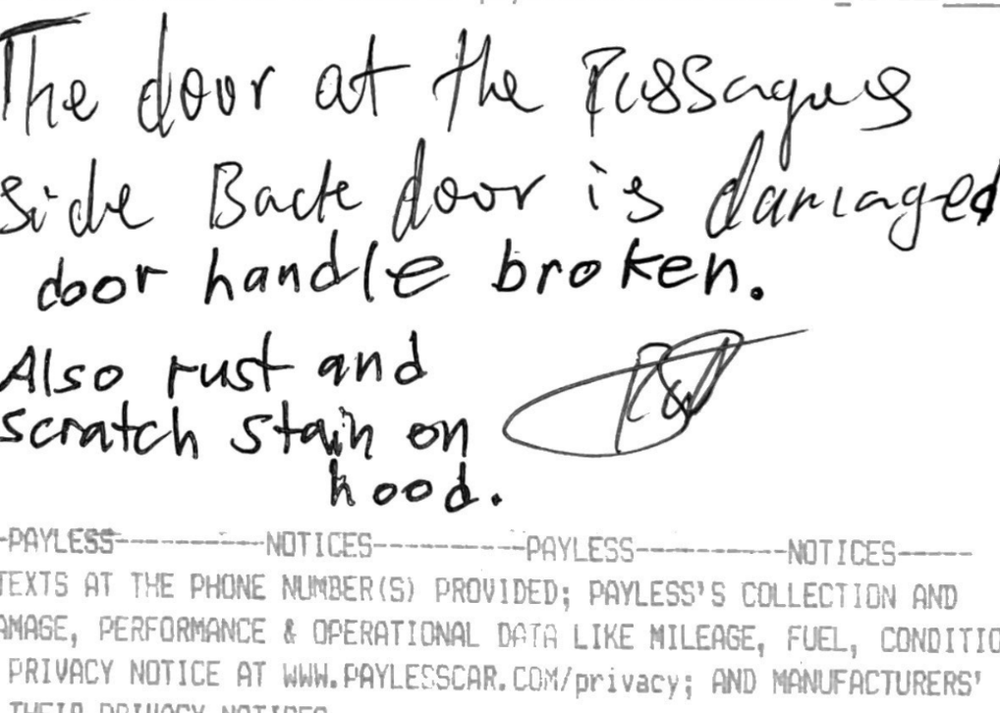 The door at the Passagers
side Back door is damaged
door handle broken.
Also rust and
scratch stain on
hood.
-PAYLESS----------NOTICES----------PAYLESS----------NOTICES-----
TEXTS AT THE PHONE NUMBER(S) PROVIDED; PAYLESS'S COLLECTION AND
AMAGE, PERFORMANCE & OPERATIONAL DATA LIKE MILEAGE, FUEL, CONDITIO
PRIVACY NOTICE AT WWW.PAYLESSCAR.COM/privacy; AND MANUFACTURERS'
THEIR PRIVACY NOTICES